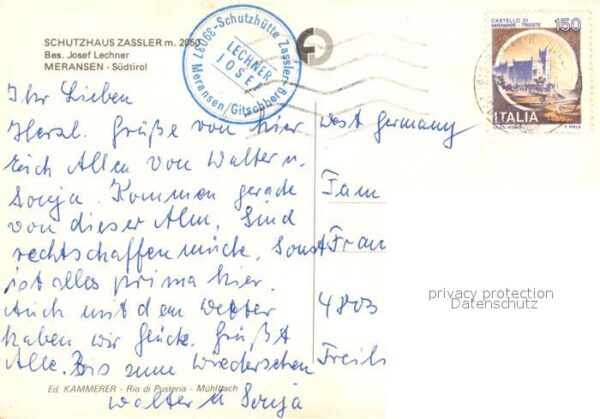 SCHUTZHAUS ZASSLER m. 2050
Bes. Josef Lechner
MERANSEN - Südtirol
39037-Schutzhütte Zassler
LECHNER
JOSEF
Meransen/Gitschberg
CASTELLO DI
MIRAMARE - TRIESTE
150
ITALIA
Ihr Lieben
Herzl. Grüße von hier
Euch Allen von Walter u.
Sonja. Kommen gerade
von dieser Alm, Sind
rechtschaffen müde, Sonst
ist alles prima hier.
Auch mit dem Wetter
haben wir Glück. Grüßt
Alle. Bis zum Wiedersehen
Walter u Sonja
West Germany
Fam
Fran
4803
privacy protection
Datenschutz
Ed. KAMMERER - Rio di Pusteria - Mühlbach